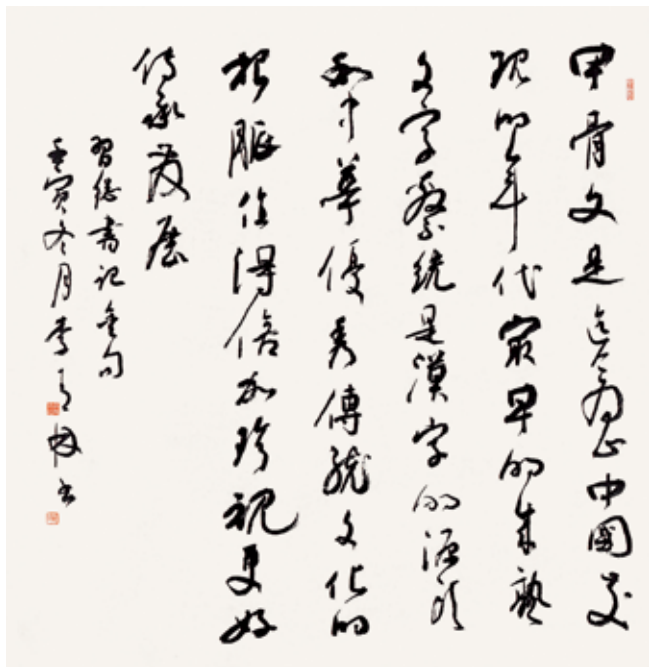 甲骨文是迄今為止中國發
現的年代最早的成熟
文字系統是漢字的源頭
和中華優秀傳統文化的
根脈值得倍加珍視更好
傳承發展
習總書記金句
壬寅冬月李